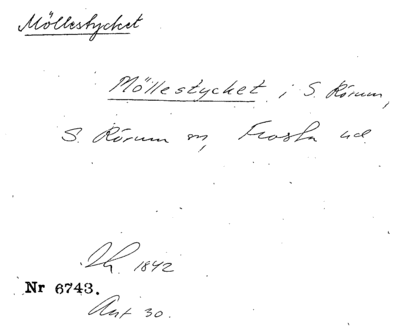 Möllestycket
Möllestycket i S. Rörum,
S. Rörum sn, Frosta hd.
Lh. 1842
Nr 6743.
Avt 30.